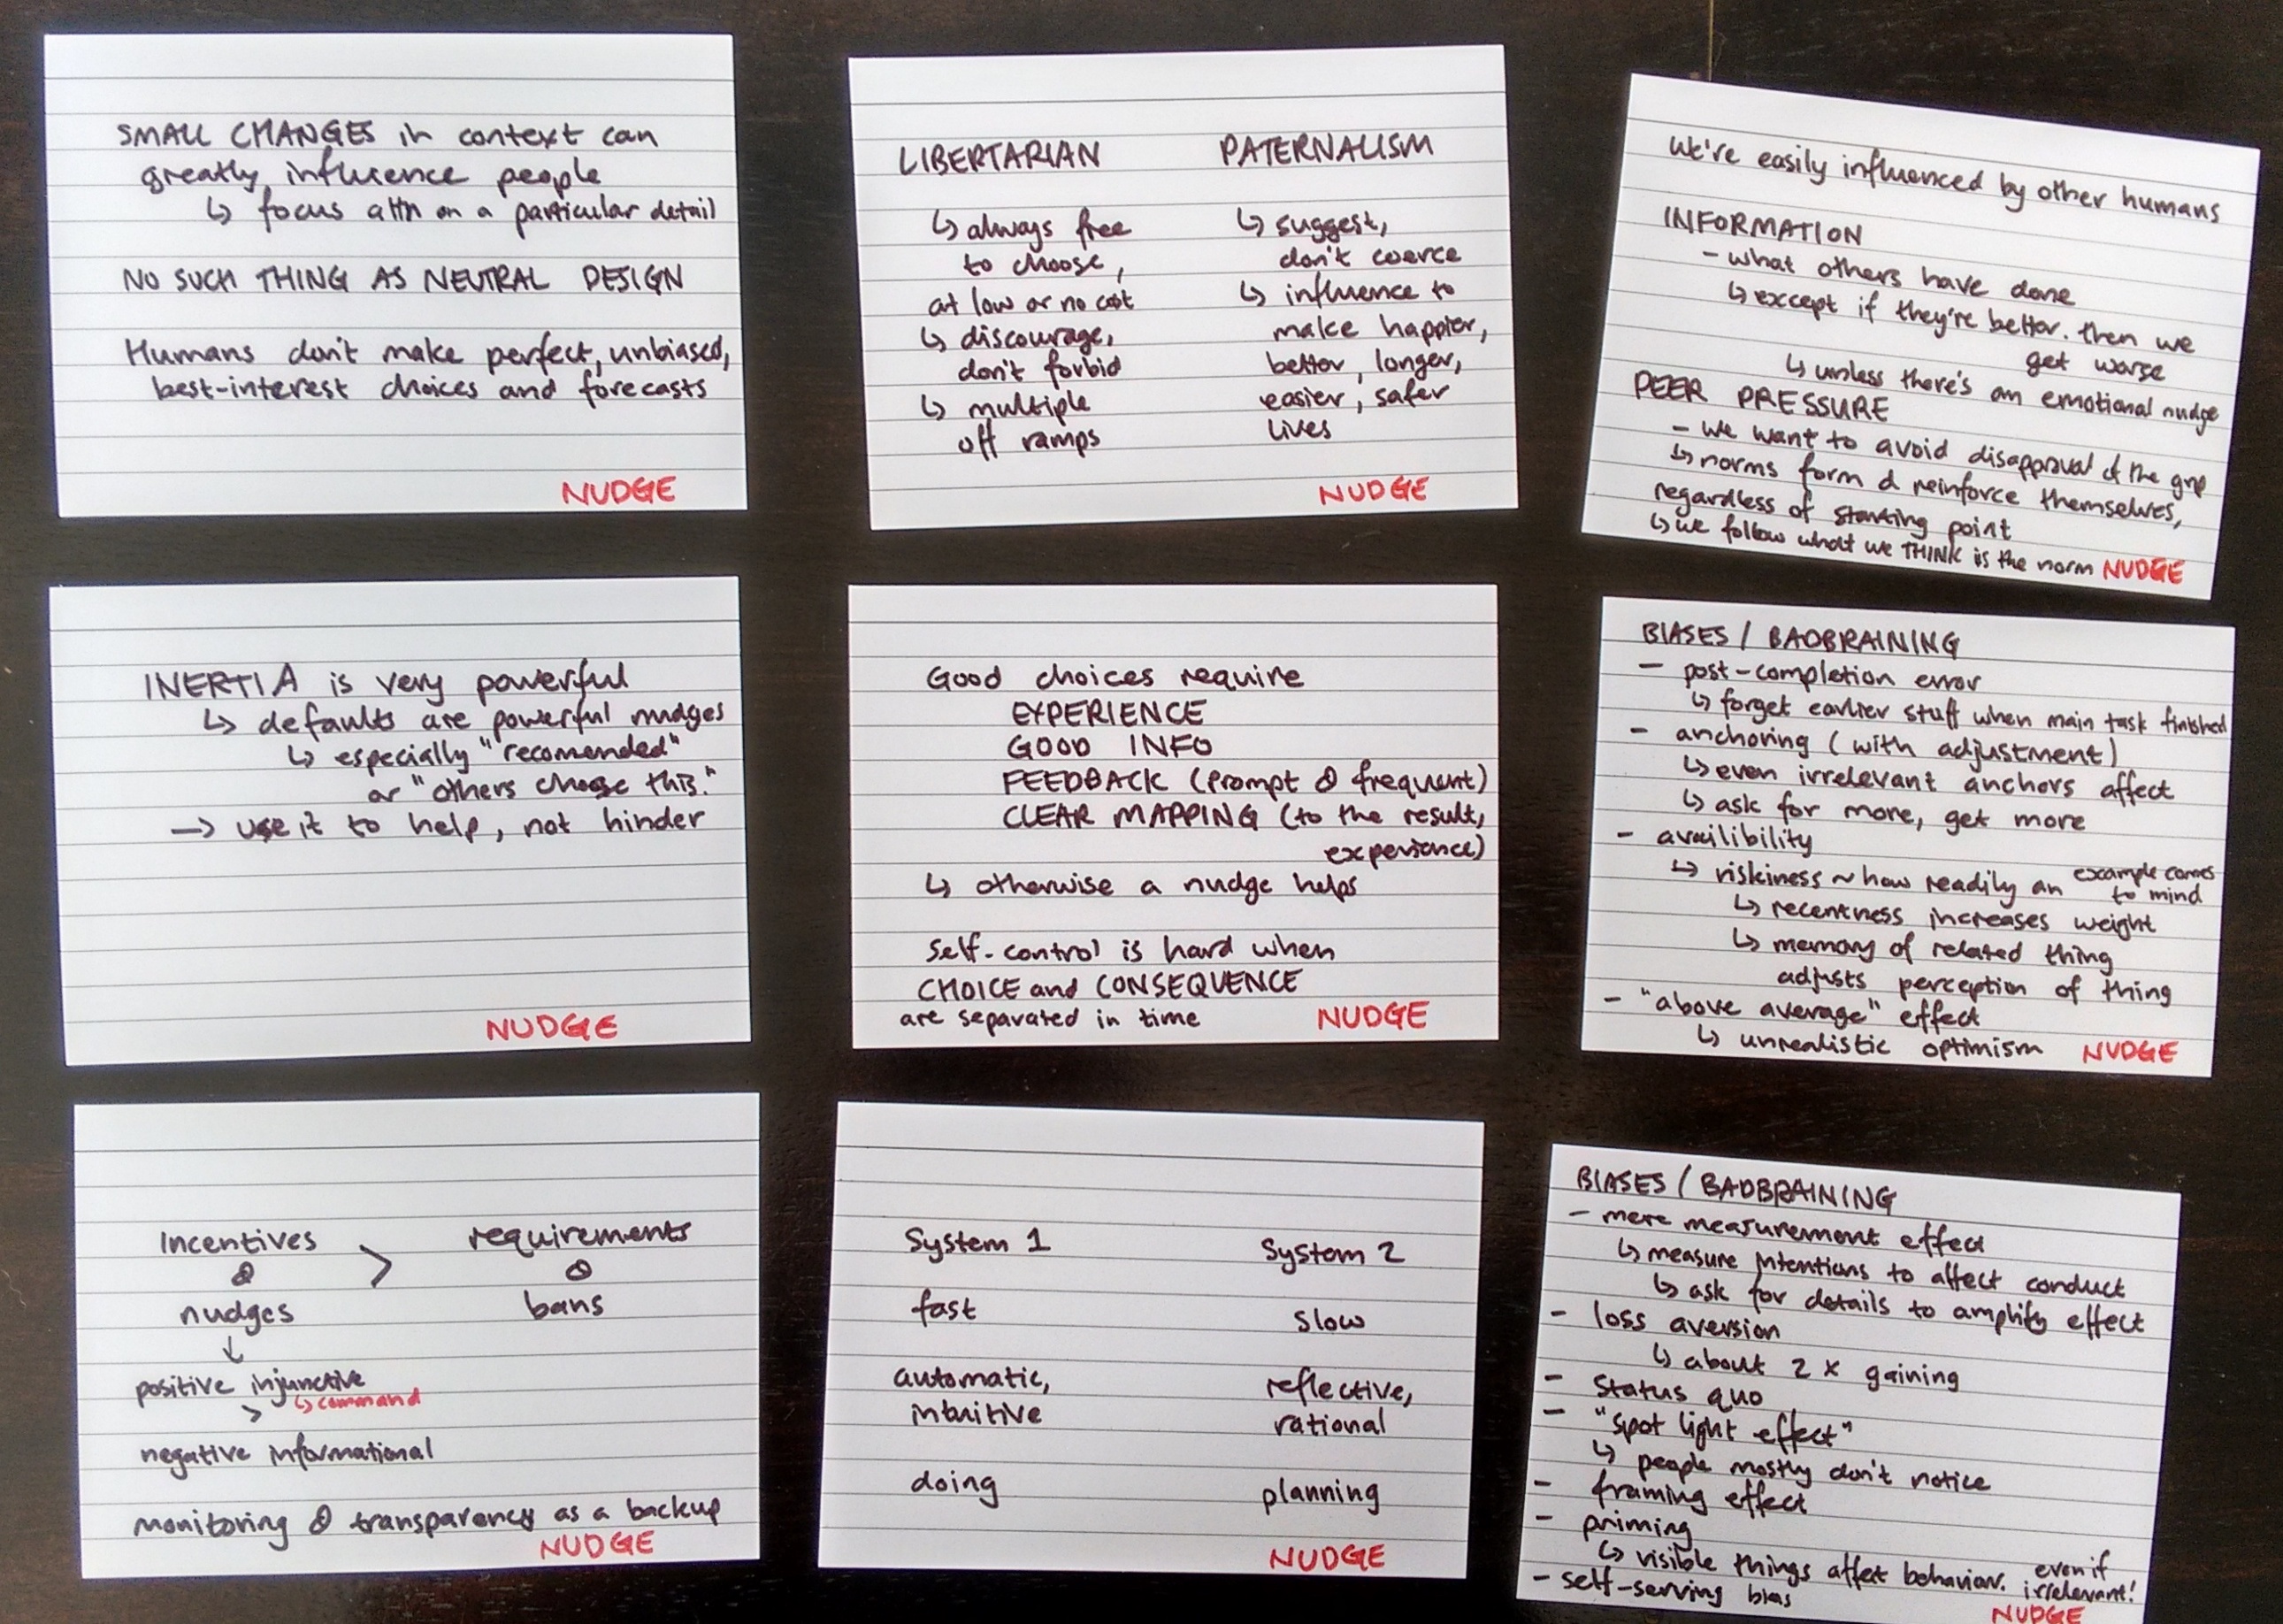 SMALL CHANGES in context can
greatly influence people
↳ focus attn on a particular detail
NO SUCH THING AS NEUTRAL DESIGN
Humans don't make perfect, unbiased,
best-interest choices and forecasts
NUDGE
LIBERTARIAN PATERNALISM
↳ always free
to choose,
at low or no cost
↳ discourage,
don't forbid
↳ multiple
off ramps
↳ suggest,
don't coerce
↳ influence to
make happier,
better, longer,
easier, safer
lives
NUDGE
We're easily influenced by other humans
INFORMATION
- what others have done
↳ except if they're better. then we
get worse
↳ unless there's an emotional nudge
PEER PRESSURE
- we want to avoid disapproval of the grp
↳ norms form & reinforce themselves,
regardless of starting point
↳ we follow what we THINK is the norm NUDGE
INERTIA is very powerful
↳ defaults are powerful nudges
↳ especially "recomended"
or "others choose this."
→ use it to help, not hinder
NUDGE
Good choices require
EXPERIENCE
GOOD INFO
FEEDBACK (prompt & frequent)
CLEAR MAPPING (to the result,
experience)
↳ otherwise a nudge helps
Self-control is hard when
CHOICE and CONSEQUENCE
are separated in time NUDGE
BIASES / BADBRAINING
- post-completion error
↳ forget earlier stuff when main task finished
- anchoring (with adjustment)
↳ even irrelevant anchors affect
↳ ask for more, get more
- availibility
↳ riskiness ~ how readily an example comes
to mind
↳ recentness increases weight
↳ memory of related thing
adjusts perception of thing
- "above average" effect
↳ unrealistic optimism NUDGE
Incentives
&
nudges
>
requirements
&
bans
↓
positive injunctive
↳ command
>
negative informational
monitoring & transparency as a backup
NUDGE
System 1 System 2
fast slow
automatic, reflective,
intuitive rational
doing planning
NUDGE
BIASES / BADBRAINING
- mere measurement effect
↳ measure intentions to affect conduct
↳ ask for details to amplify effect
- loss aversion
↳ about 2x gaining
- status quo
- "spot light effect"
↳ people mostly don't notice
- framing effect
- priming
↳ visible things affect behavior. even if
irrelevant!
- self-serving bias
NUDGE